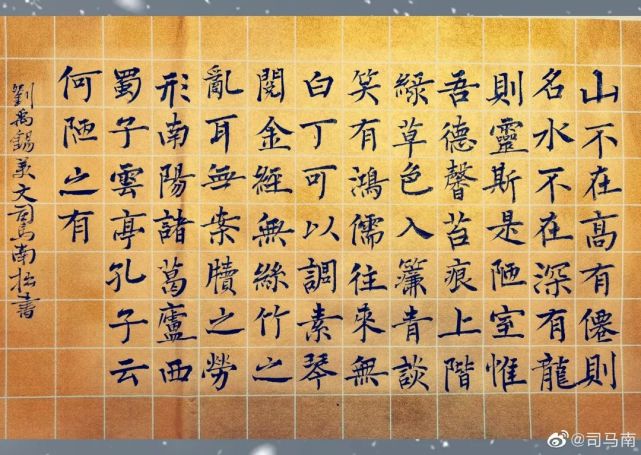 山不在高有僊則
名水不在深有龍
則靈斯是陋室惟
吾德馨苔痕上階
綠草色入簾青談
笑有鴻儒往來無
白丁可以調素琴
閱金經無絲竹之
亂耳無案牘之勞
形南陽諸葛廬西
蜀子雲亭孔子云
何陋之有
劉禹錫美文司馬南拙書
@司马南